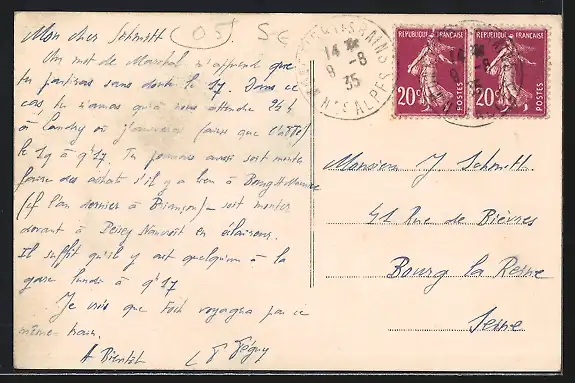 05 SE
Mon cher Schmitt
Un mot de Maréchal m'apprend que
tu partirais sans doute le 17. Dans ce
cas tu n'aurais qu'à nous attendre 24 h
à Landry où j'arriverai
le 19 à 9h17. Tu pourrais aussi soit monter
faire des achats s'il y a lieu à Bourg St Maurice
(cf l'an dernier à Briançon) – soit monter
devant à Peisey Nancroit en éclaireur.
Il suffit qu'il y ait quelqu'un à la
gare lundi à 9h17
Je crois que voyagera par ce
même train.
A Bientôt Péguy
RÉPUBLIQUE FRANÇAISE RÉPUBLIQUE FRANÇAISE
20c POSTES 20c POSTES
14
8 -8
35
Htes ALPES
Monsieur J Schmitt
41 Rue de Bièvres
Bourg la Reine
Seine